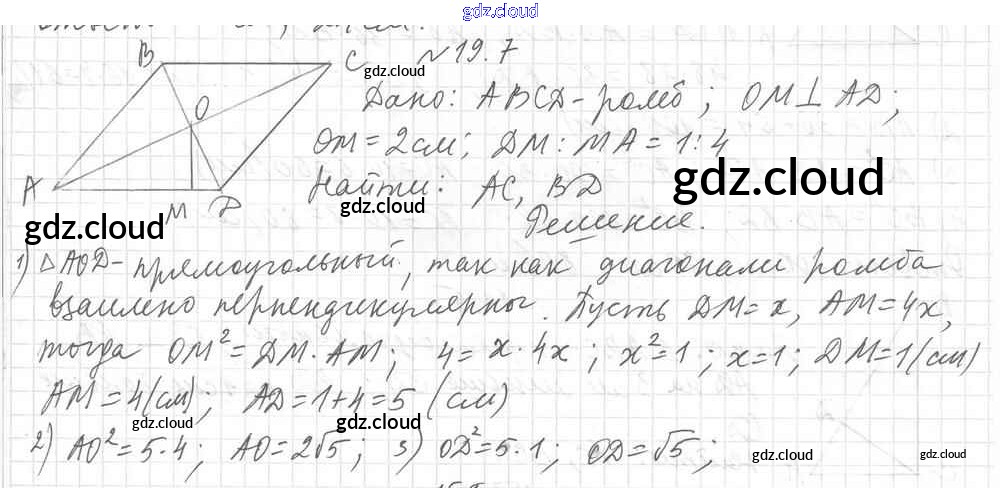 gdz.cloud
B C №19.7
gdz.cloud
Дано: ABCD - ромб; OM⊥AD;
O
OM = 2см; DM : MA = 1:4
gdz.cloud
A Найти: AC, BD
gdz.cloud
M D Решение.
gdz.cloud
1) △AOD - прямоугольный, так как диагонали ромба
взаимно перпендикулярны. Пусть DM = x, AM = 4x,
тогда OM² = DM · AM; 4 = x · 4x; x² = 1; x = 1; DM = 1 (см)
AM = 4 (см); AD = 1 + 4 = 5 (см)
gdz.cloud gdz.cloud
2) AO² = 5 · 4; AO = 2√5; 3) OD² = 5 · 1; OD = √5;
gdz.cloud gdz.cloud gdz.cloud